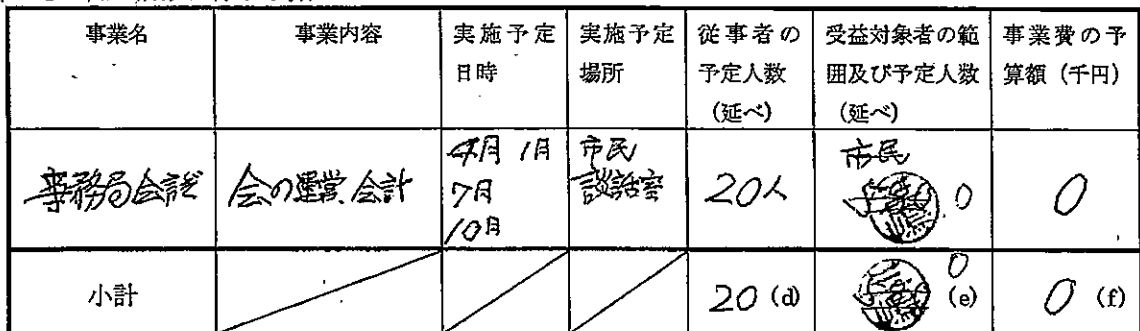 事業名 事業内容 実施予定日時 実施予定場所 従事者の予定人数(延べ) 受益対象者の範囲及び予定人数(延べ) 事業費の予算額(千円)
事務局会議 会の運営、会計 4月 1月 7月 10月 市民談話室 20人 市民 0 0
小計 20 (d) 0 (e) 0 (f)